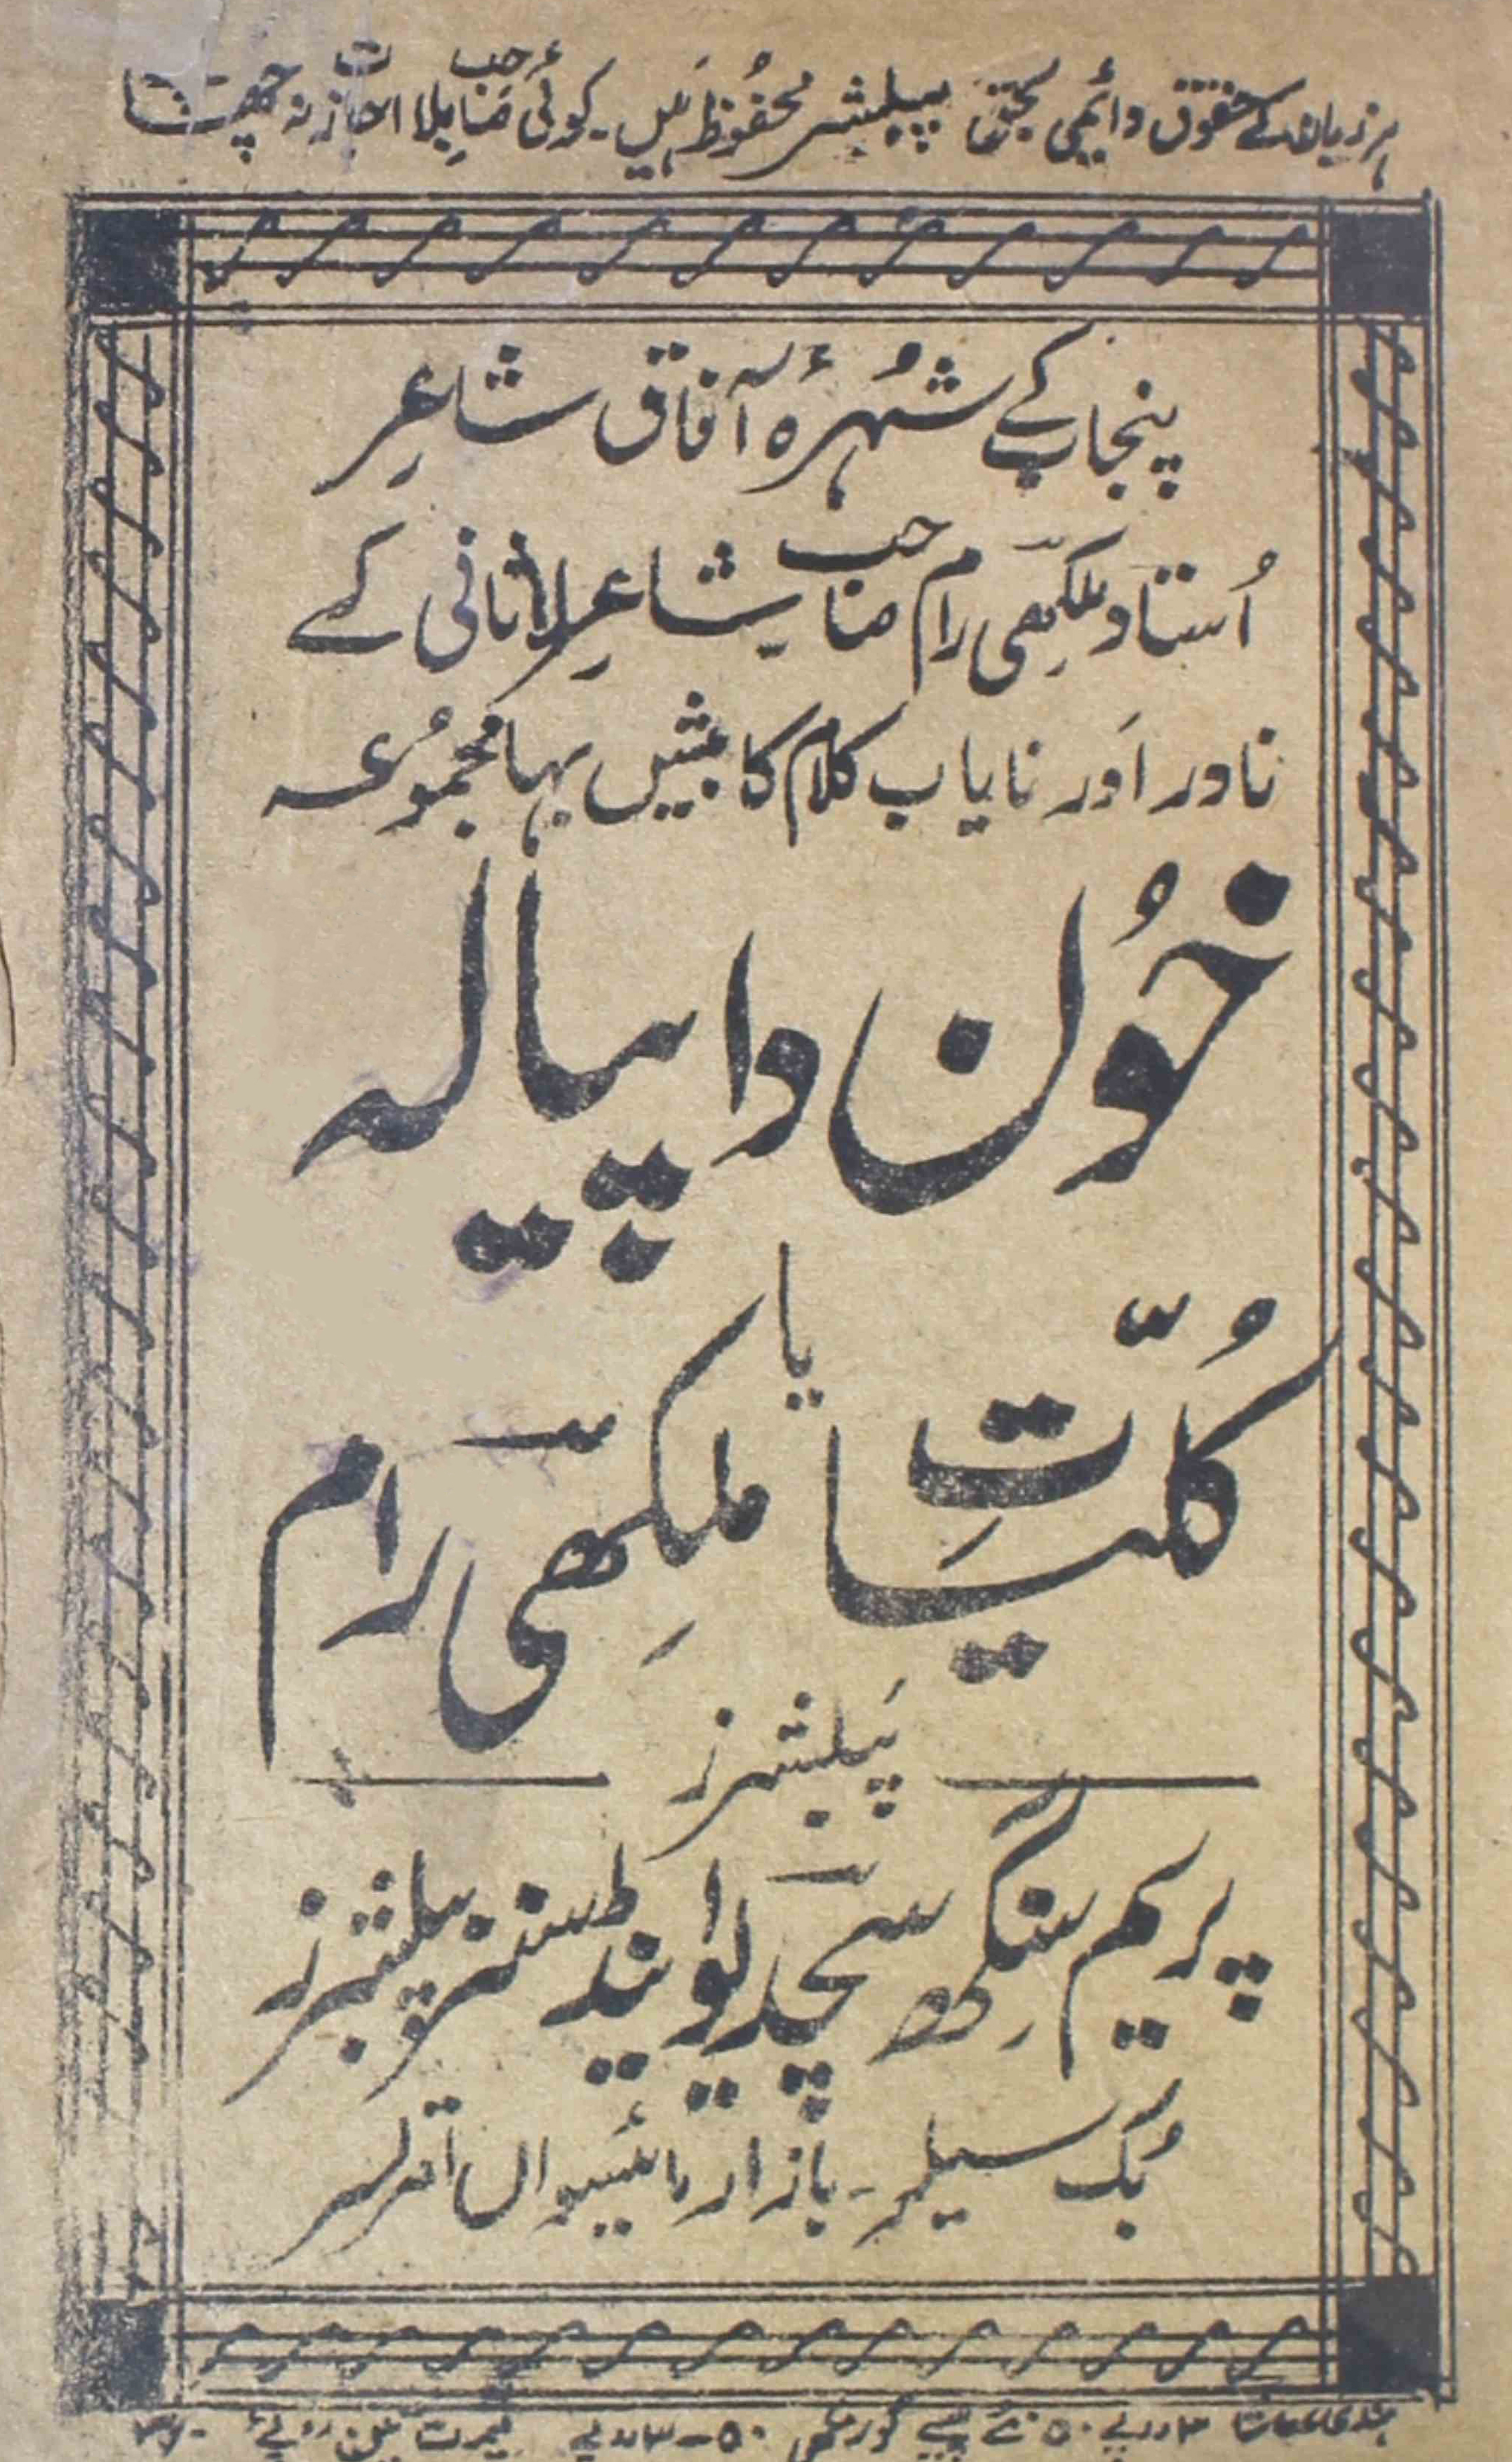 ہر زبان کے حقوق دائمی بحق پبلیشر محفُوظ ہیں۔ کوئی صاحب بِلا اجازت نہ چھاپے
پنجاب کے شُہرۂ آفاق شاعِر
اُستاد ملکِھّی رام صاحب شاعرِ لاثانی کے
نادر اَور نایاب کلام کا بیش بہا مجمُوعہ
خُون دا پیالہ
یا
کُلّیاتِ ملکِھّی رام
پَبلیشرز
پریم سِنگھ سچدیو اینڈ سنز پبلیشرز
بُک سیلر۔ بازار مائیسیواں امرتسر